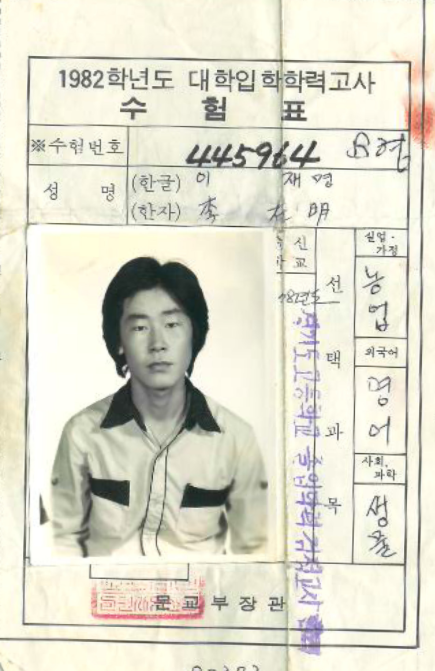 1982학년도 대학입학학력고사
수 험 표
※수험번호 445964 B형
성 명 (한글) 이 재 명
(한자) 李 在 明
출신
학교
82년도
경기도 고등학교 졸업학력 검정고시 합격
선 택 과 목
실업·
가정
농업
외국어
영어
사회·
과학
생물
문교부장관